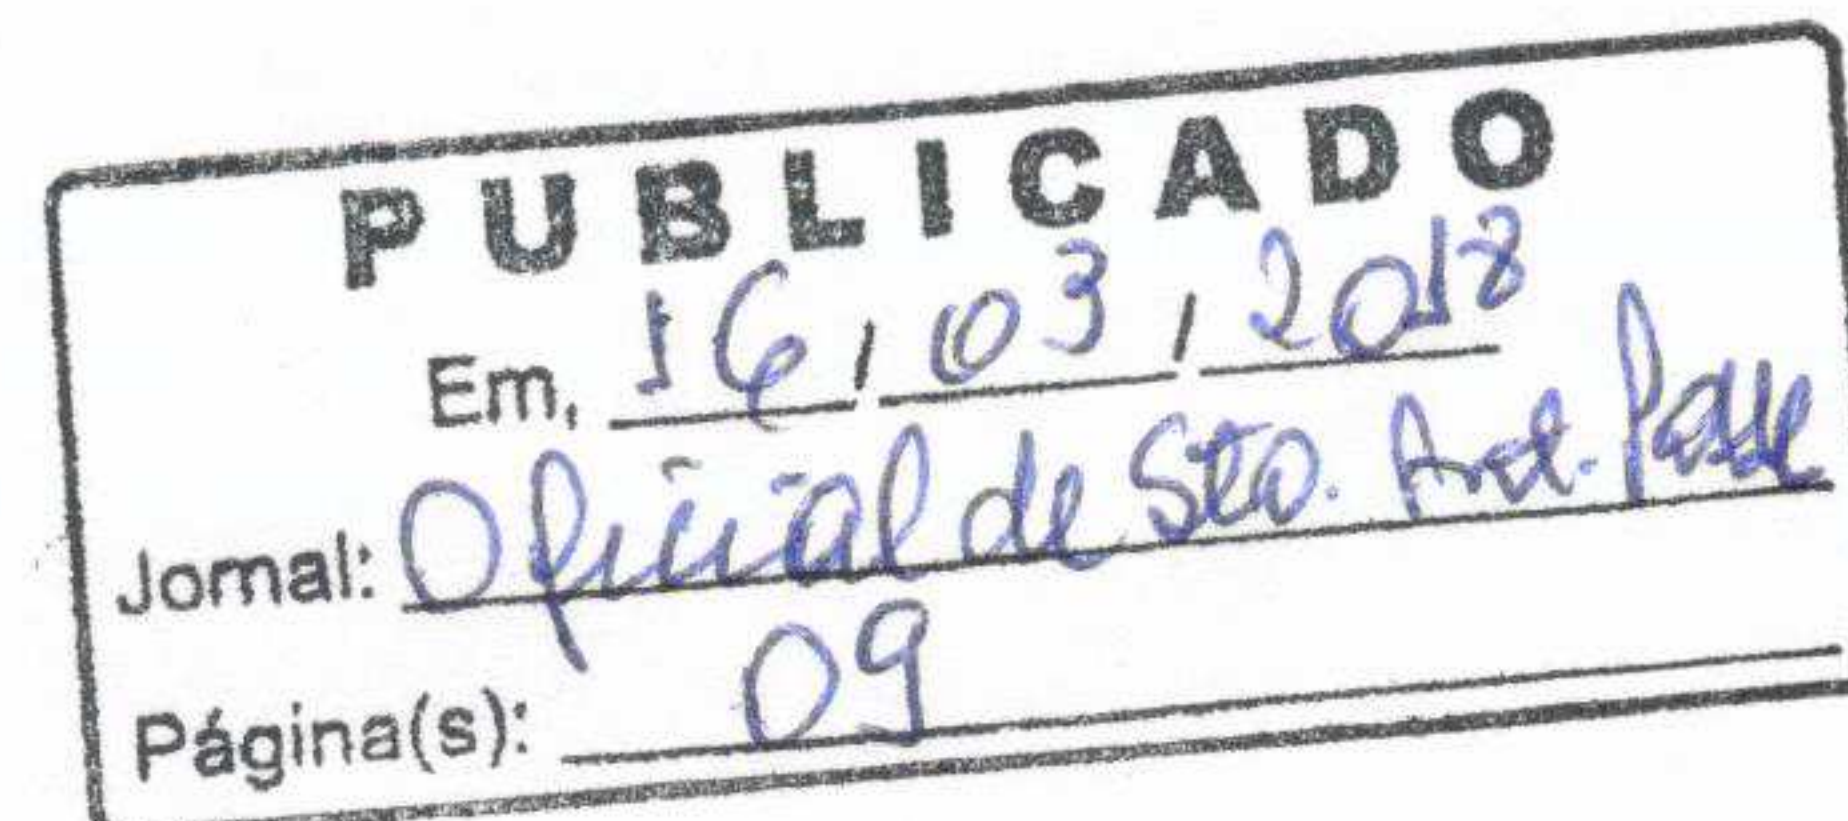 PUBLICADO
Em, 16/03/2018
Jornal: Oficial de Sto. Ant. Posse
Página(s): 09